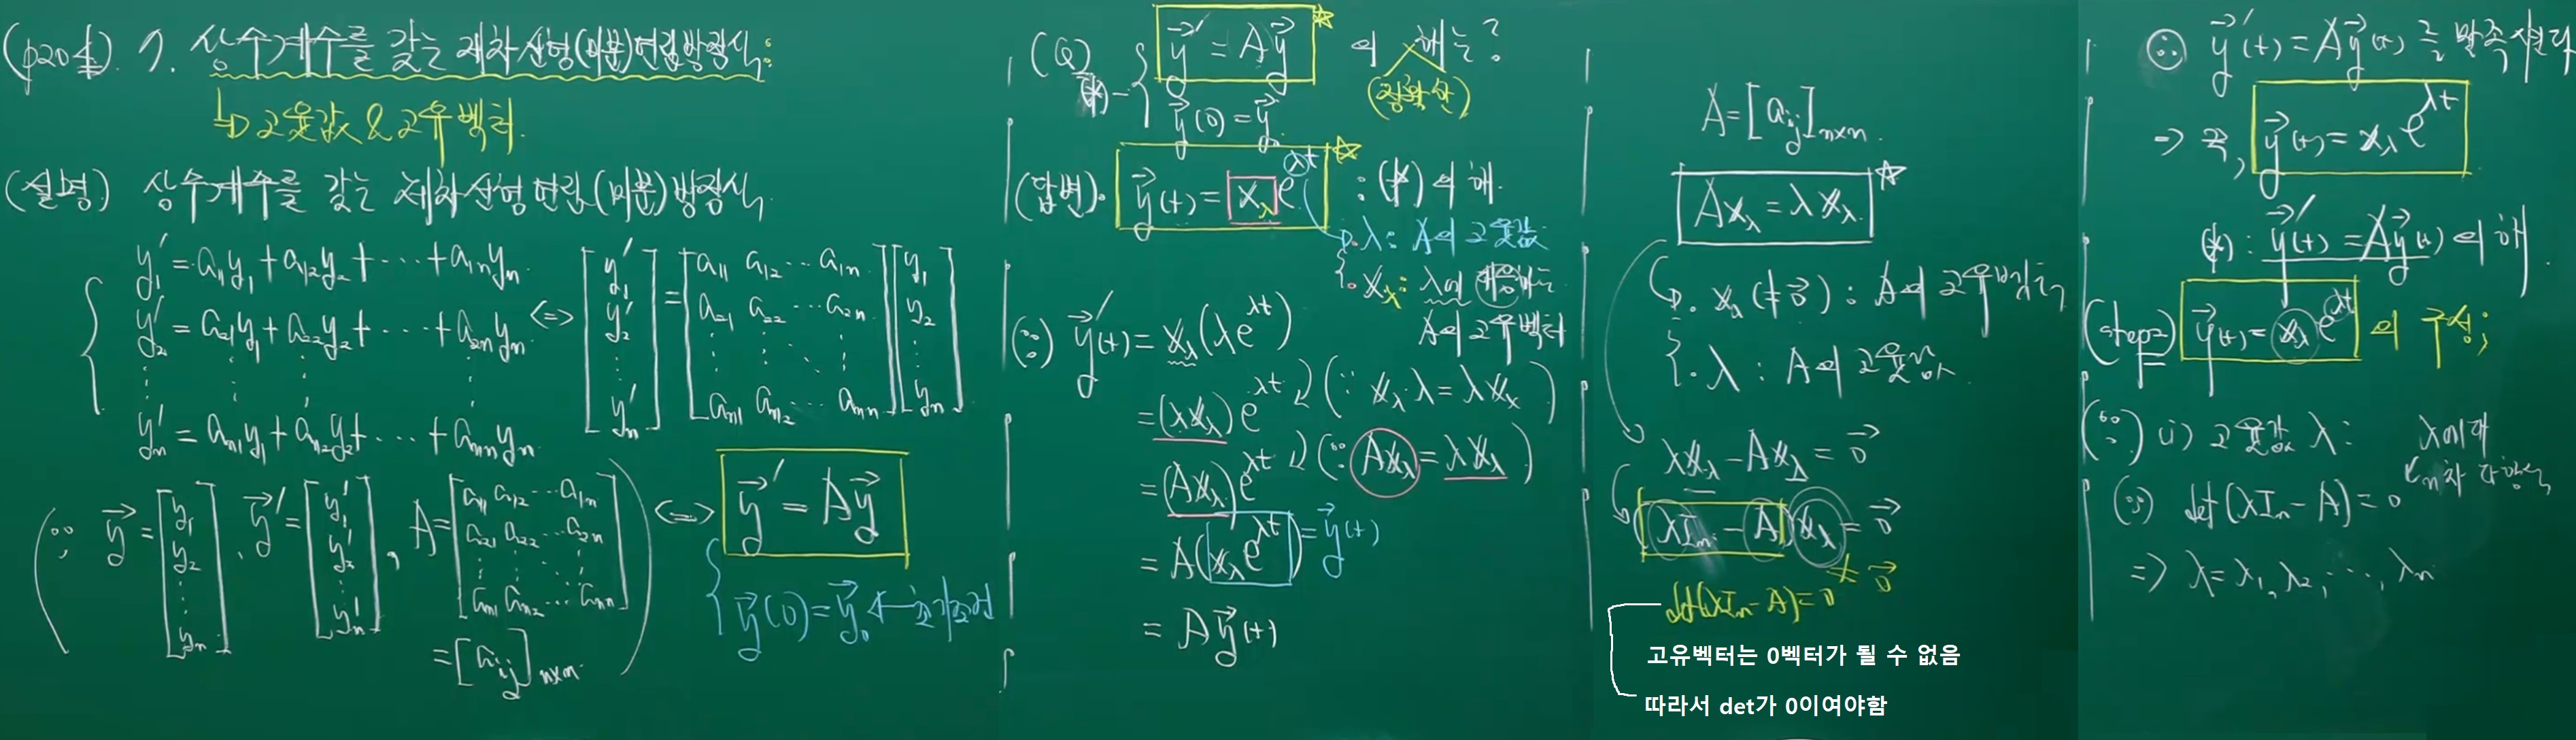 (p204). 7. 상수계수를 갖는 제차선형(미분)연립방정식:
↳ 고유값 & 고유벡터.
(설명) 상수계수를 갖는 제차선형연립(미분)방정식.
y₁' = a₁₁y₁ + a₁₂y₂ + ⋯ + a₁ₙyₙ
y₂' = a₂₁y₁ + a₂₂y₂ + ⋯ + a₂ₙyₙ
⋮
yₙ' = aₙ₁y₁ + aₙ₂y₂ + ⋯ + aₙₙyₙ
⟺ [y₁' y₂' ⋮ yₙ'] = [a₁₁ a₁₂ ⋯ a₁ₙ; a₂₁ a₂₂ ⋯ a₂ₙ; ⋮; aₙ₁ aₙ₂ ⋯ aₙₙ] [y₁ y₂ ⋮ yₙ]
(∵ y⃗ = [y₁ y₂ ⋮ yₙ], y⃗' = [y₁' y₂' ⋮ yₙ'], A = [a₁₁ a₁₂ ⋯ a₁ₙ; a₂₁ a₂₂ ⋯ a₂ₙ; ⋮; aₙ₁ aₙ₂ ⋯ aₙₙ]
= [aᵢⱼ]ₙₓₙ)
⟺ y⃗' = Ay⃗
y⃗(0) = y⃗₀ ← 초기조건
(Q) y⃗' = Ay⃗ 의 해는?
(*)- y⃗(0) = y⃗₀
(답변). y⃗(t) = x_λ e^{λt} : (*)의 해.
λ: A의 고유값
x_λ: λ에 대응하는
A의 고유벡터
(∵) y⃗'(t) = x_λ(λe^{λt})
= (λx_λ)e^{λt} (∵ x_λ·λ = λx_λ)
= (Ax_λ)e^{λt} (∵ Ax_λ = λx_λ)
= A(x_λ e^{λt}) = y⃗(t)
= Ay⃗(t)
A = [aᵢⱼ]ₙₓₙ.
Ax_λ = λx_λ.
x_λ(≠0⃗) : A의 고유벡터
λ : A의 고유값.
λx_λ - Ax_λ = 0⃗
(λIₙ - A)x_λ = 0⃗
≠ 0⃗
det(λIₙ - A) = 0
고유벡터는 0벡터가 될 수 없음
따라서 det가 0이여야함
∴ y⃗'(t) = Ay⃗(t)를 만족시킨다
⇒ 즉, y⃗(t) = x_λ e^{λt}
(*) : y⃗'(t) = Ay⃗(t)의 해.
(step2) y⃗(t) = x_λ e^{λt} 의 구성;
(∵) (i) 고유값 λ:
λ에 대한
n차 다항식
(∵) det(λIₙ - A) = 0
⇒ λ = λ₁, λ₂, ⋯, λₙ